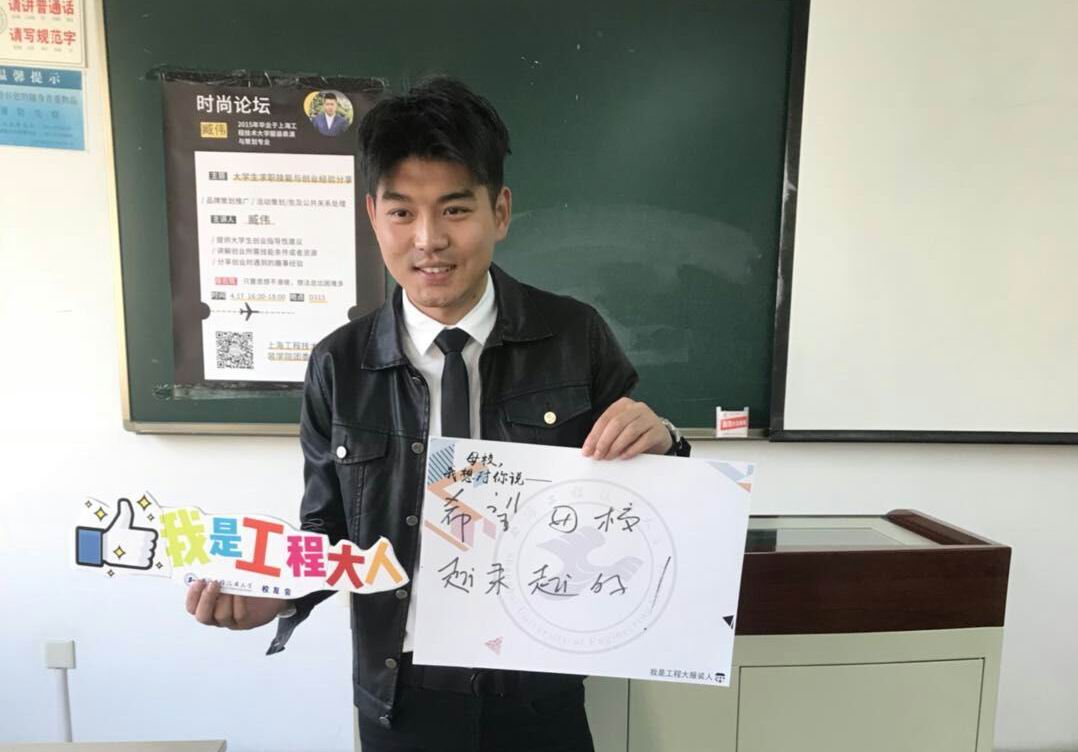 请讲普通话
请写规范字
温馨提示
时尚论坛
臧伟
2015年毕业于上海工
程技术大学服装表演
与策划专业
主题 大学生求职技能与创业经验分享
/ 品牌策划推广 / 活动策划/危及公共关系处理
主讲人 臧伟
/ 提供大学生创业指导性建议
/ 讲解创业所需技能条件或者资源
/ 分享创业时遇到的趣事经验
只要思想不滑坡,想法总比困难多
时间 4.17 16:00-18:00 地点 D315
上海工程技
装学院团委
母校,
我想对你说——
希望母校
越来越好!
我是工程大服装人
我是工程大人
校友会